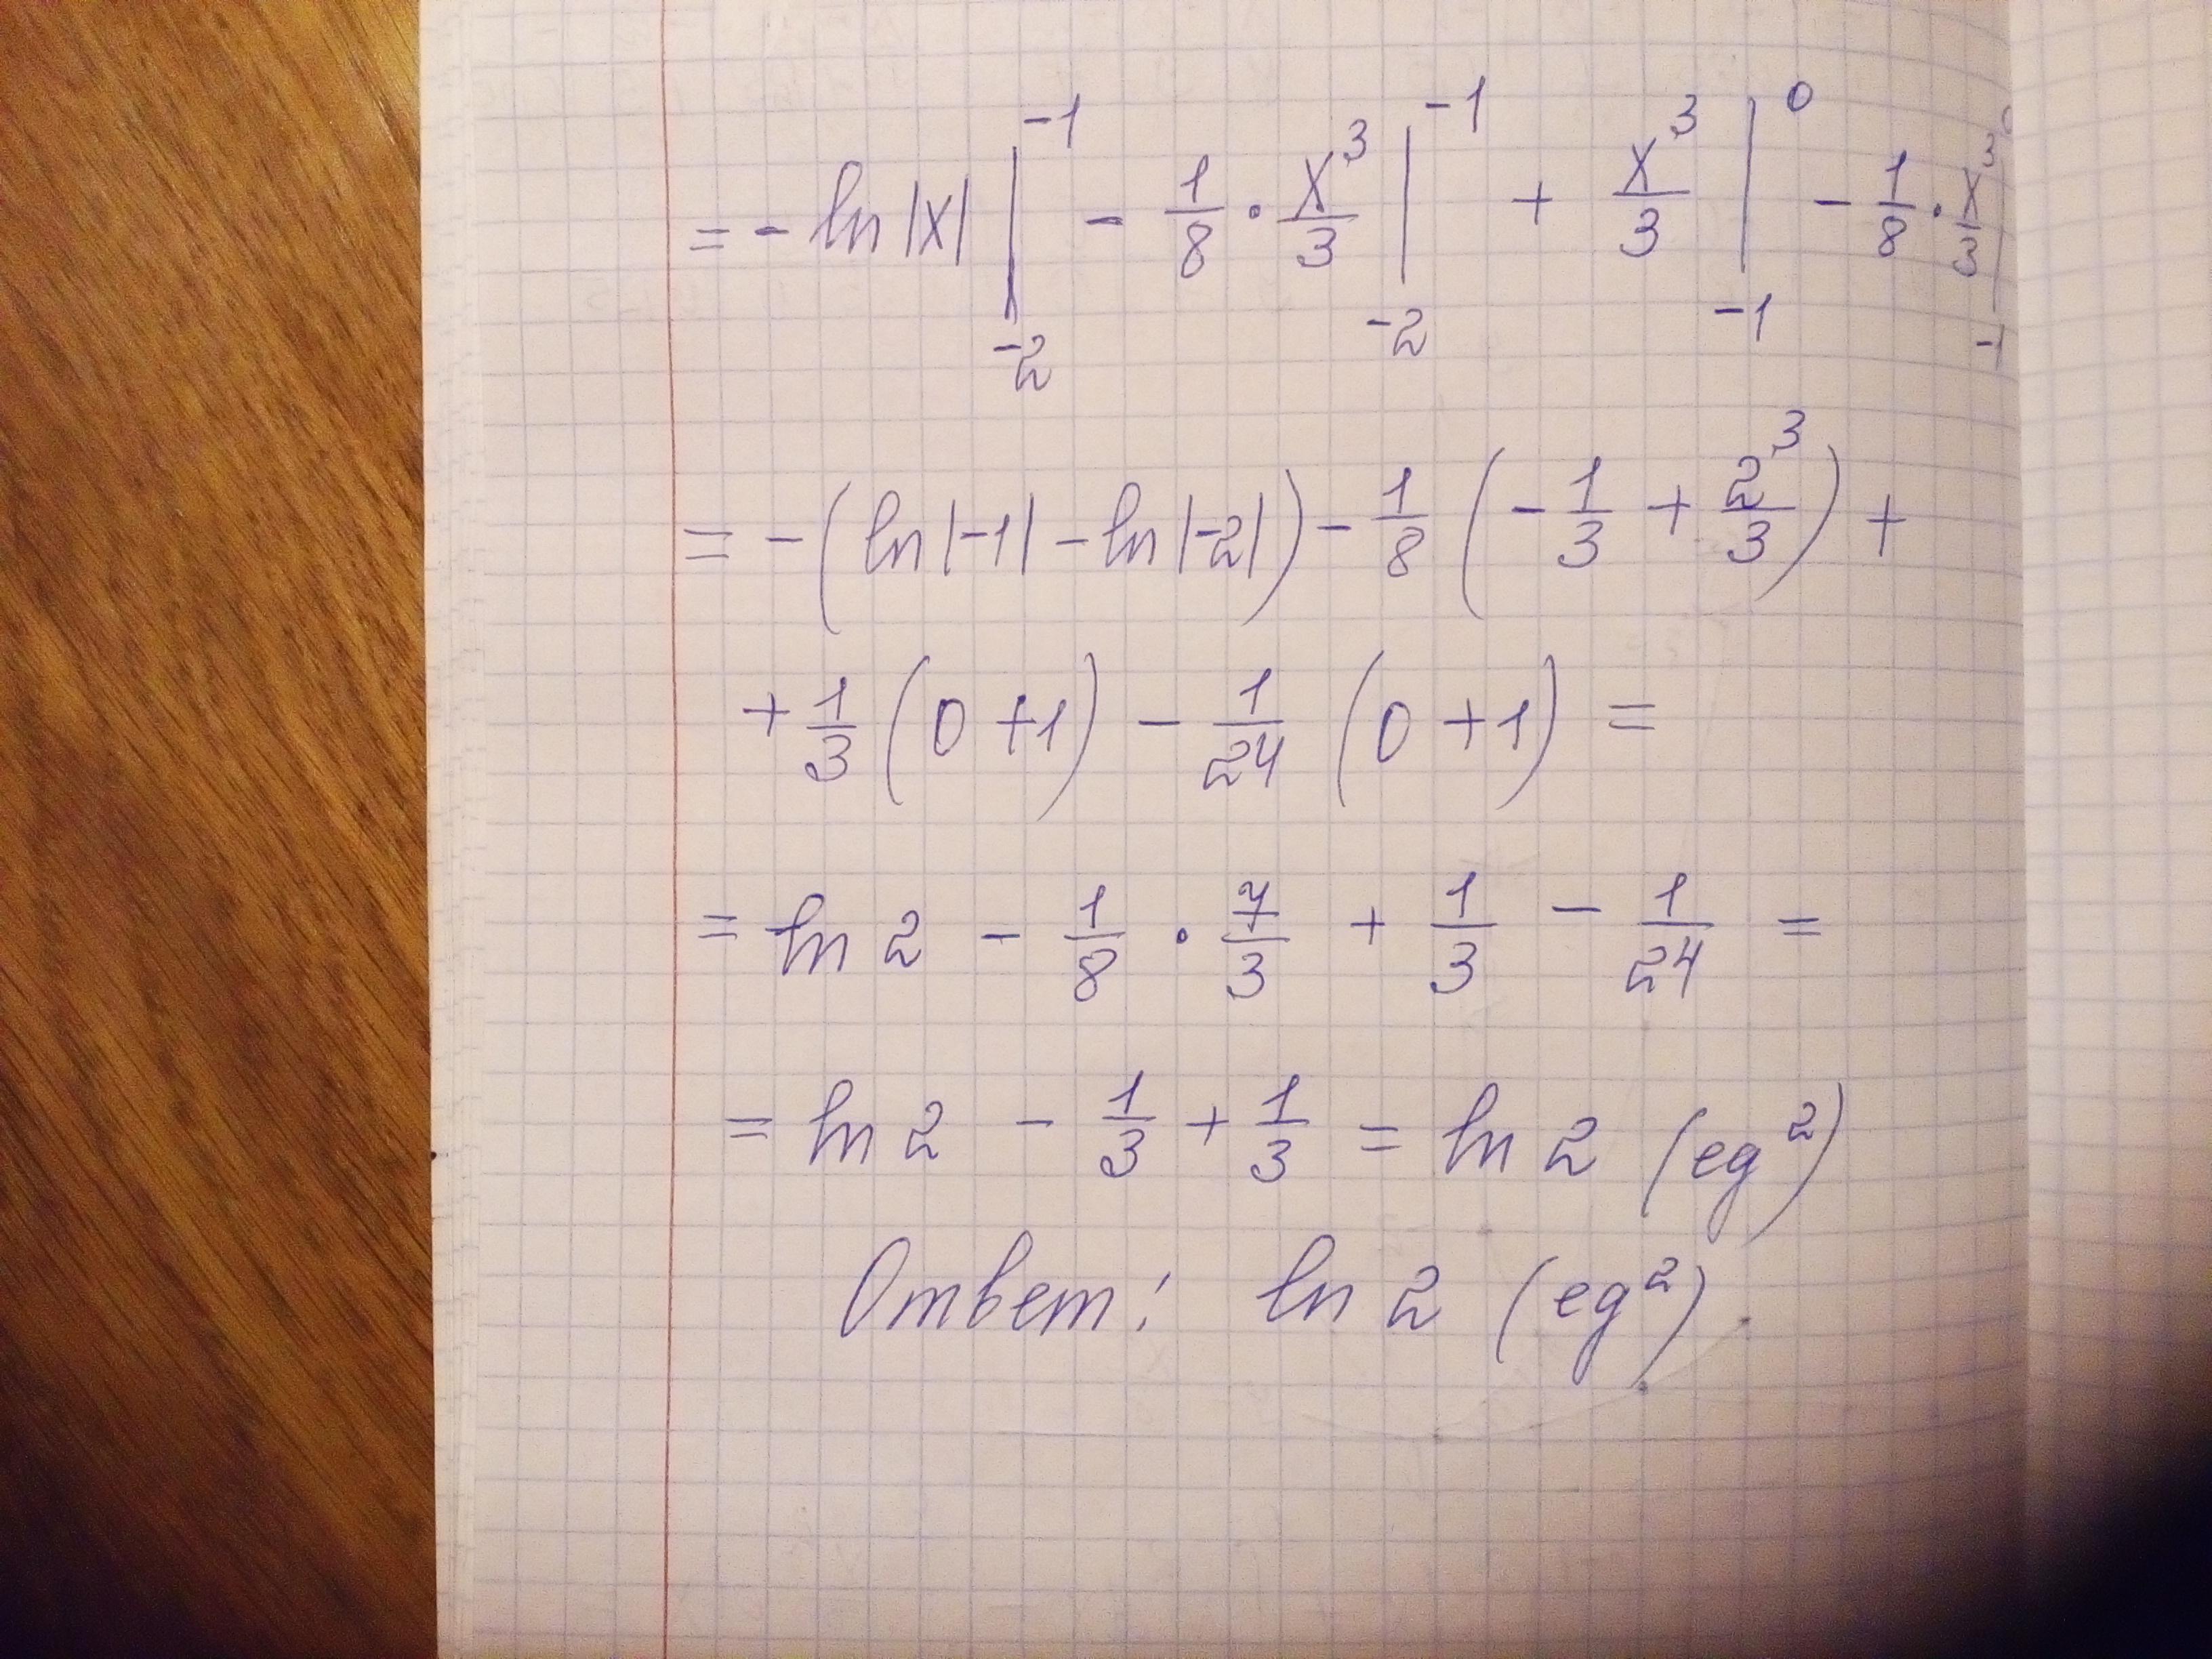 = - ln |x| |₋₂⁻¹ - 1/8 · x³/3 |₋₂⁻¹ + x³/3 |₋₁⁰ - 1/8 · x³/3 |₋₁⁰
= - (ln |-1| - ln |-2|) - 1/8 (- 1/3 + 2³/3) +
+ 1/3 (0 + 1) - 1/24 (0 + 1) =
= ln 2 - 1/8 · 7/3 + 1/3 - 1/24 =
= ln 2 - 1/3 + 1/3 = ln 2 (ед²)
Ответ: ln 2 (ед²).